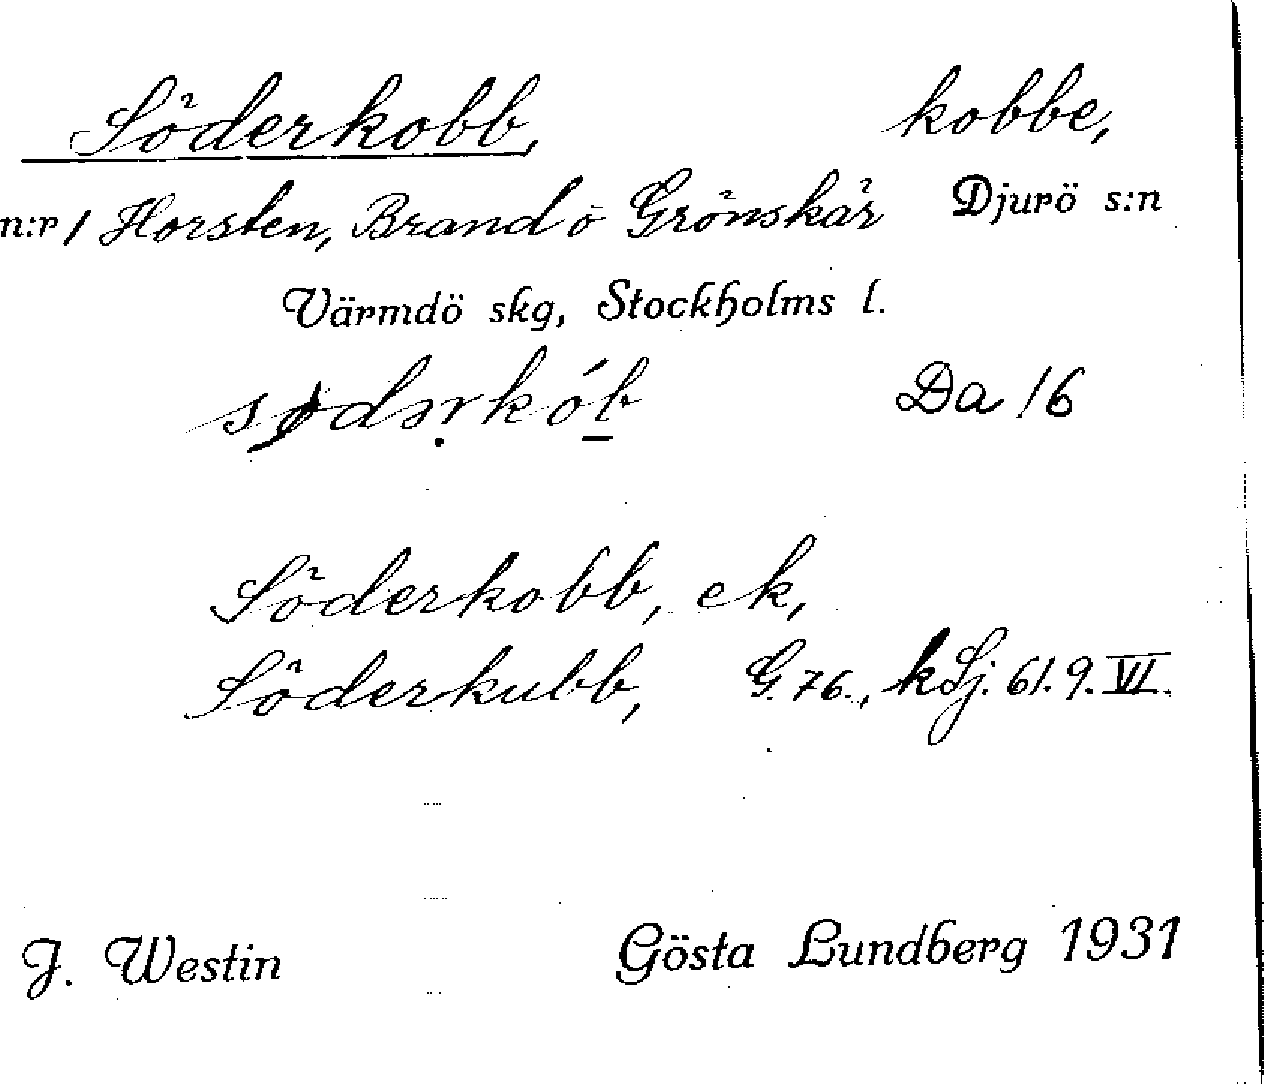 Söderkobb, kobbe,
n:r 1 Horsten, Brandö Grönskär Djurö s:n
Värmdö skg, Stockholms l.
Da 16
Söderkobb, ek,
Söderkubb, G. 76., k Lj. 61. 9. VI.
J. Westin Gösta Lundberg 1931